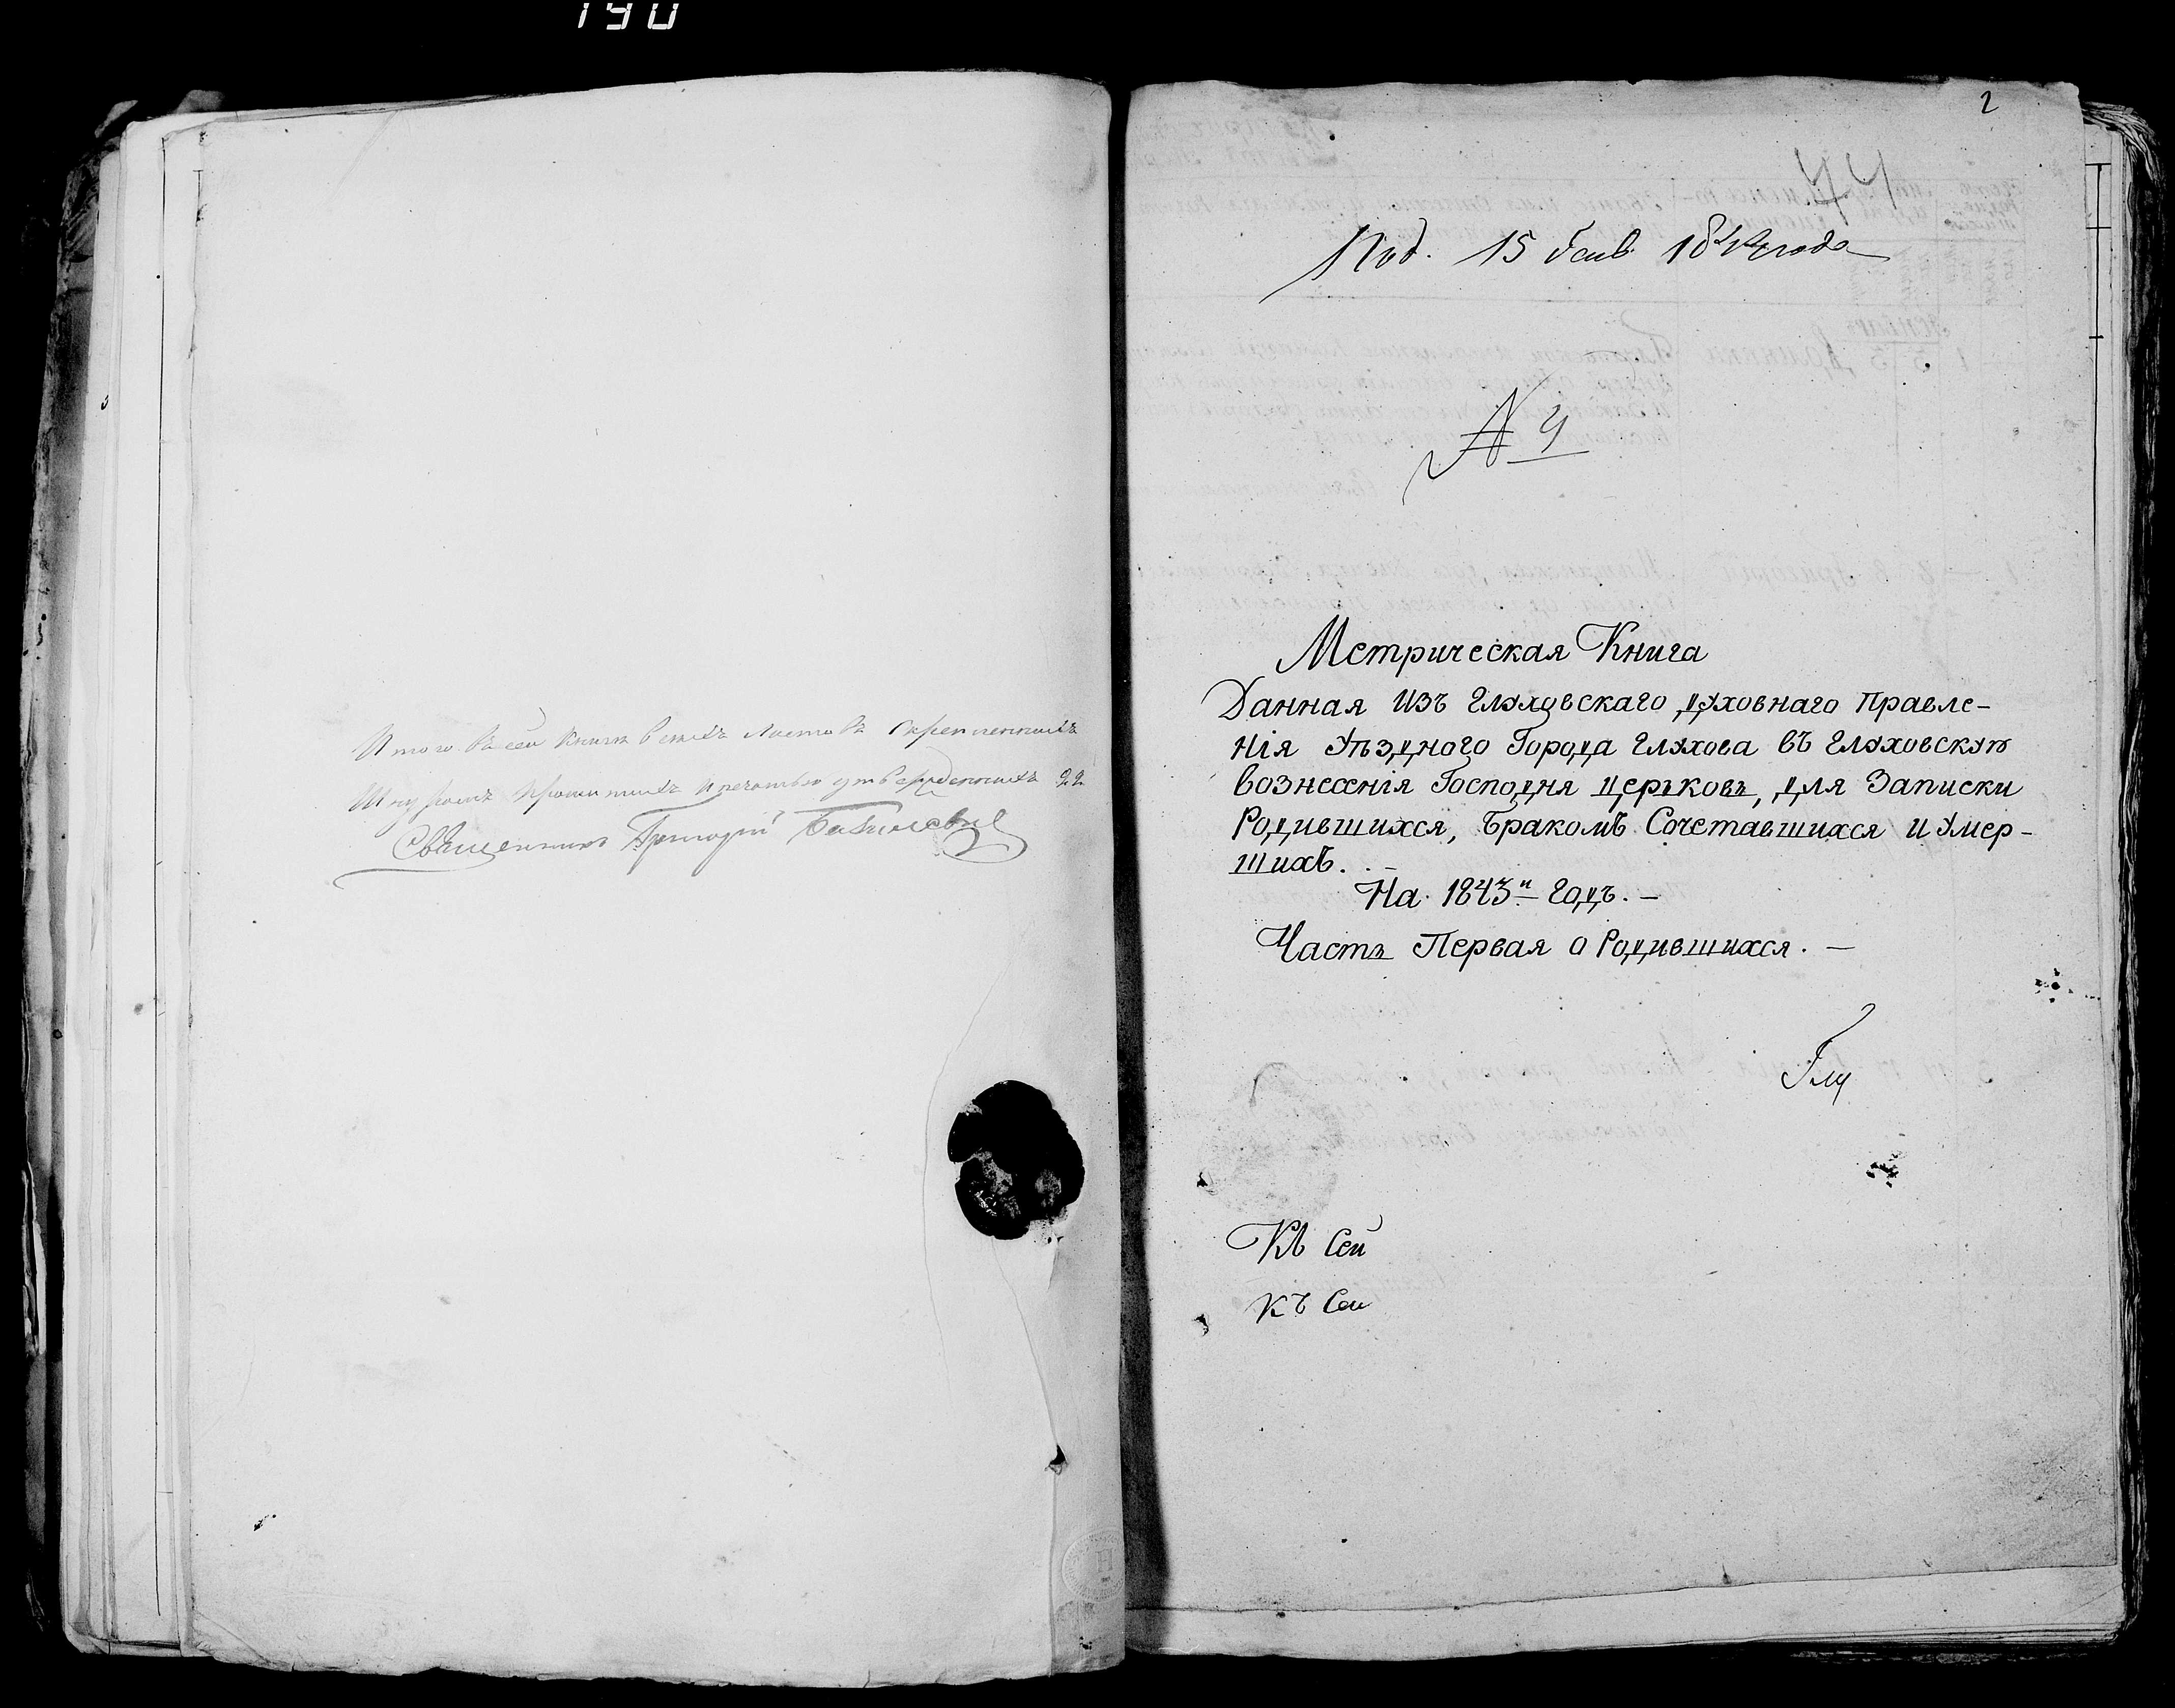 190
Итого въ сей книгѣ всехъ листовъ скрепленныхъ
Шнуромъ прошитыхъ и печатью утвержденныхъ 22.
Священникъ Григорій Базилевич
2
44
Под. 15 Генв. 1844 года
№ 4
Метрическая Книга
Данная изъ Глуховскаго Духовнаго Правле-
нія Уѣзднаго Города Глухова въ Глуховскую
вознесенія Господня Церьковь, для Записки
Родившихся, Бракомъ Сочетавшихся и Умер-
шихъ. —
На 1843й годъ. —
Часть Первая о Родившихся. —
Глу
Къ Сей
Къ Сей